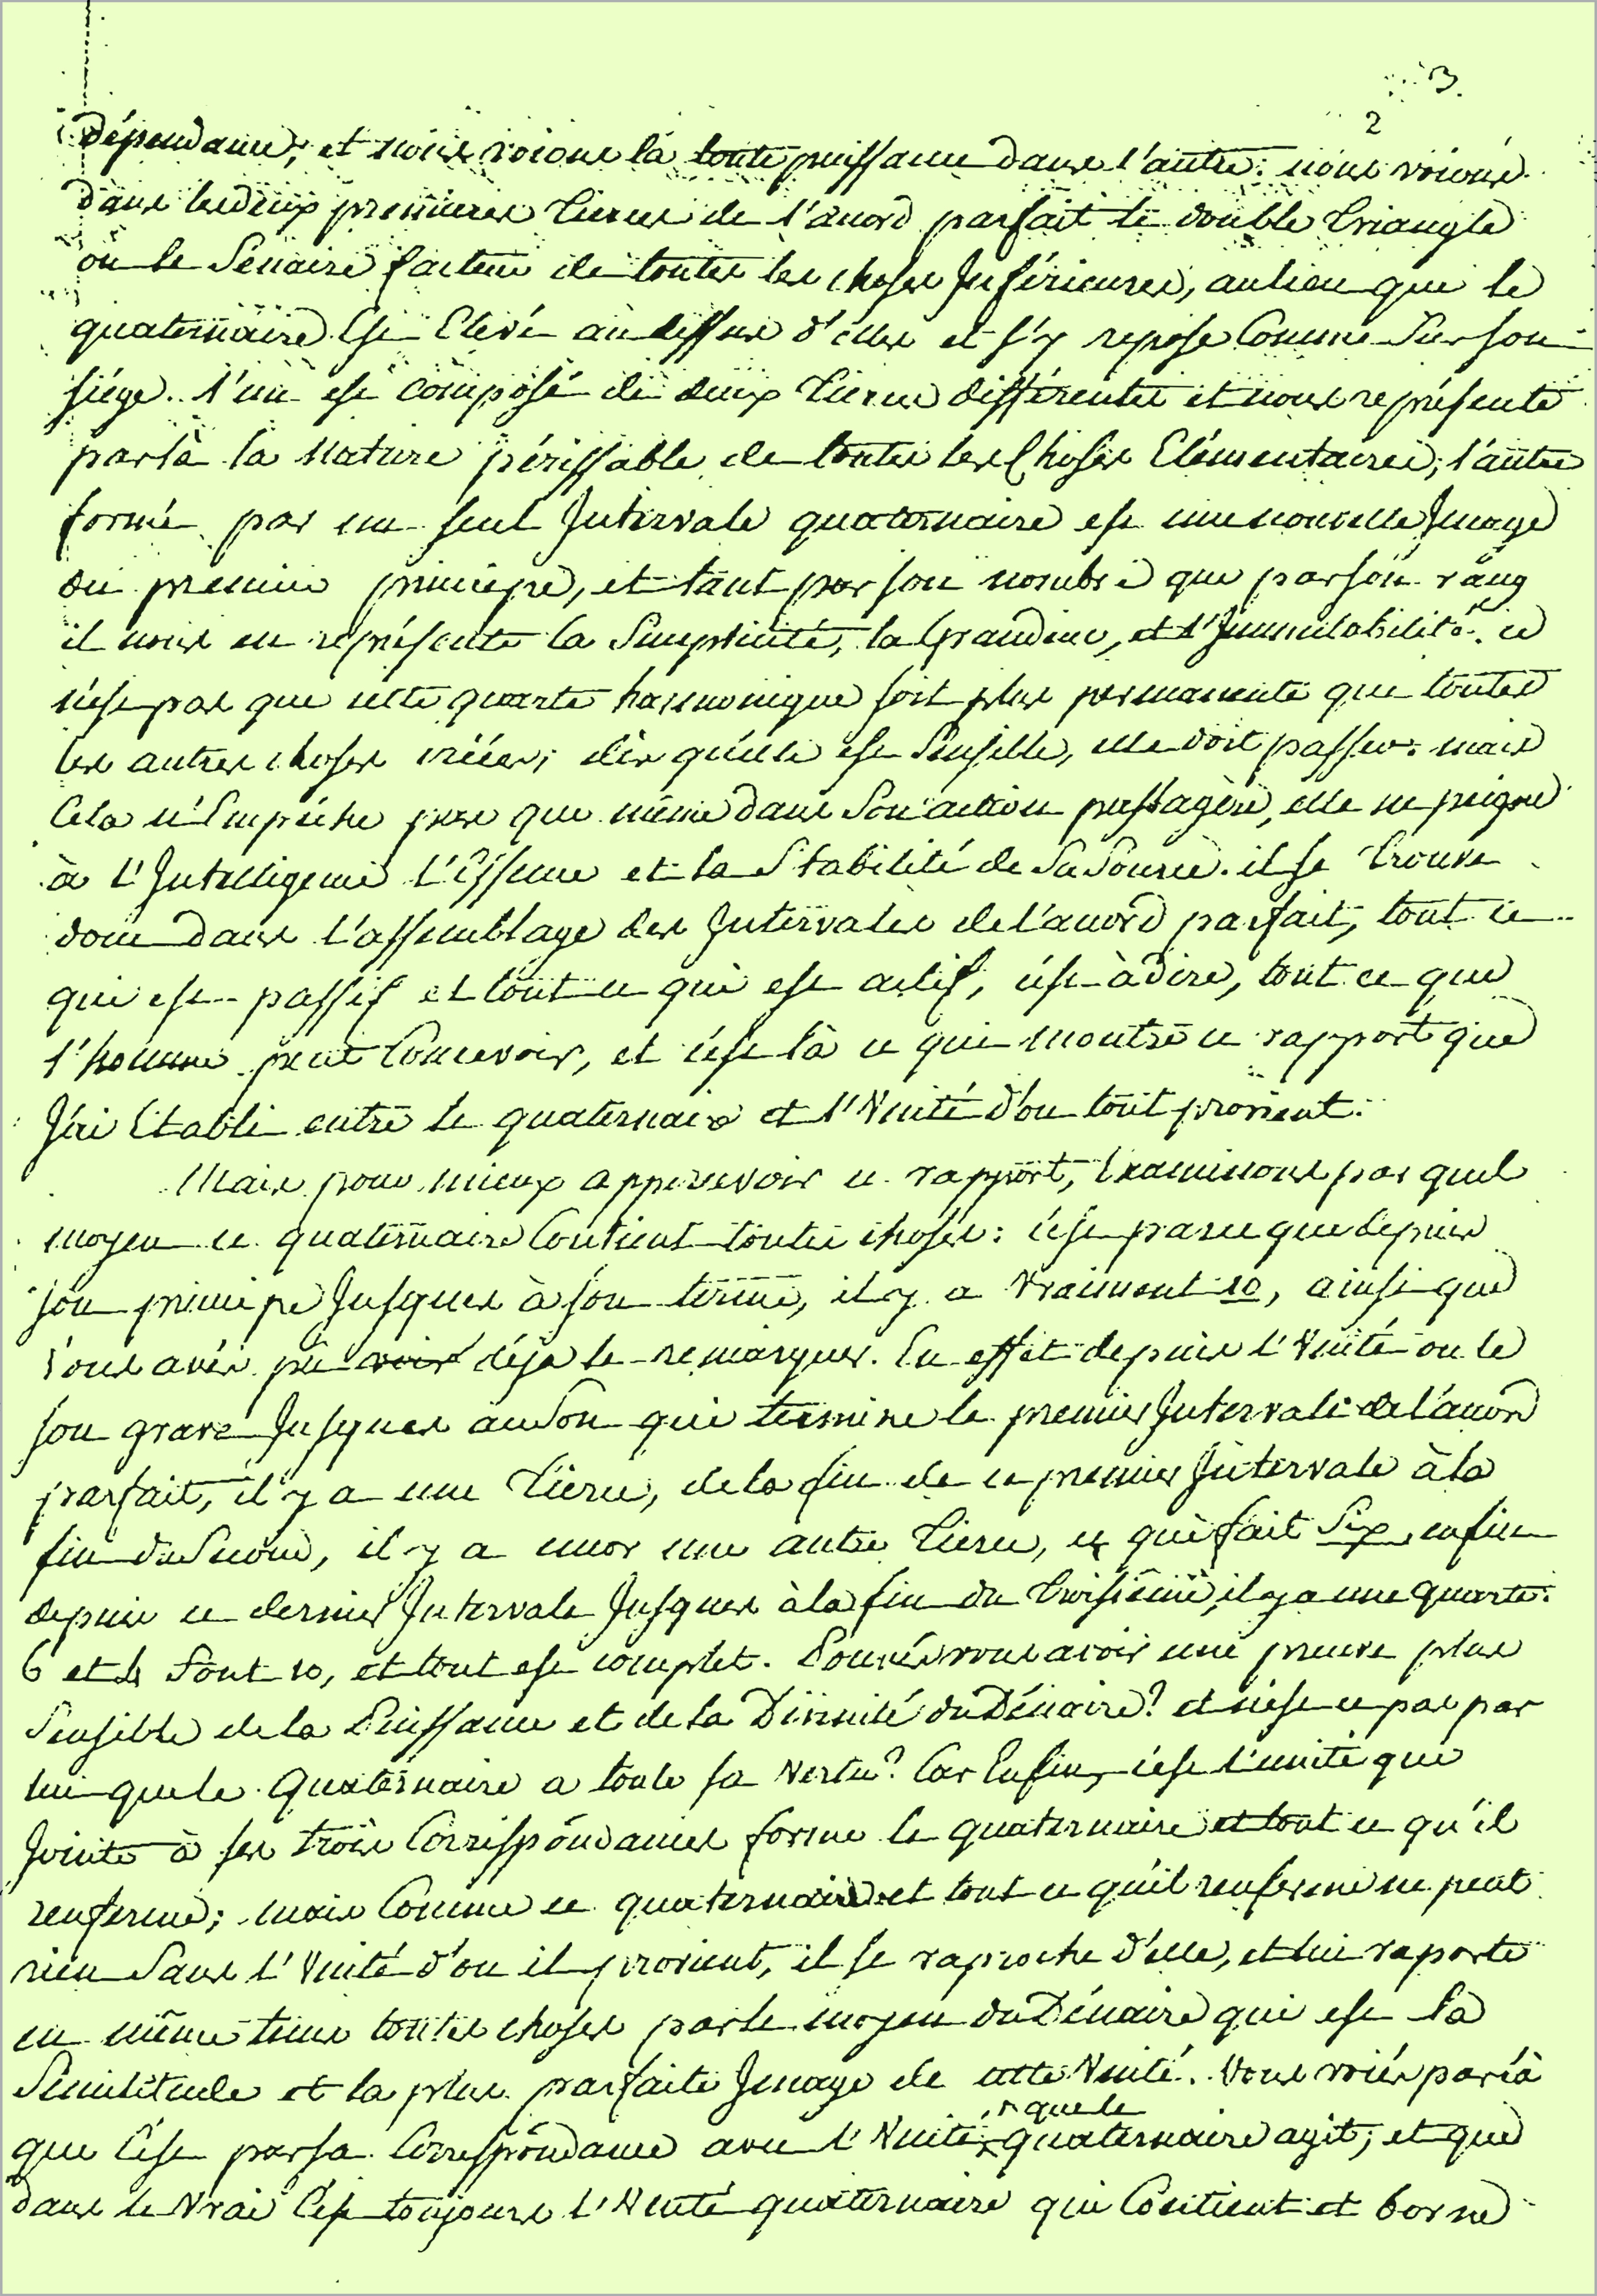 3.
2
dépendance, et nous voions la toute puissance dans l'autre: nous voions
dans les deux premieres tierces de l'accord parfait le double triangle
ou le Sénaire facteur de toutes les choses Inférieures, au lieu que le
quaternaire Est Elevé au dessus d'elles et s'y repose Comme Sur son
siége. l'un est composé de deux tierces différentes et nous représente
par là la Nature périssable de toutes les Choses Elémentaires; l'autre
formé par un seul Intervale quaternaire est une nouvelle Image
du premier principe, et tant par son nombre que par son rang
il nous en représente la Simplicité, la Grandeur, et l'Immutabilité. ce
n'est pas que cette quarte harmonique soit plus permanente que toutes
les autres choses créées; dès qu'elle est Sensible, elle doit passer: mais
Cela n'Empêche pas que même dans Son action passagère, elle ne peigne
à l'Intelligence l'Essence et la Stabilité de Sa Source. il se trouve
donc dans l'assemblage des Intervales de l'accord parfait, tout ce
qui est passif et tout ce qui est actif, c'est-à dire, tout ce que
l'homme peut Concevoir, et c'est là ce qui montre ce rapport que
J'ai Etabli entre le quaternaire et l'Unité d'ou tout provient.
Mais pour mieux appercevoir ce rapport, Examinons par quel
moyen ce quaternaire Contient toutes choses: c'est parce que depuis
son principe Jusques à son terme, il y a Vraiment 10, ainsi que
vous avés pû voir déja le remarquer. En effet depuis l'Unité ou le
son grave Jusques au Son qui termine le premier Intervale de l'accord
parfait, il y a une tierce, de la fin de ce premier Intervale à la
fin du Second, il y a encor une autre tierce, ce qui fait Six, enfin
depuis ce dernier Intervale Jusques à la fin du troisième, il y a une quarte:
6 et 4 font 10, et tout est complet. Pouvés vous avoir une preuve plus
Sensible de la Puissance et de la Divinité du Dénaire? et n'est ce pas par
lui que le Quaternaire a toute sa Vertu? Car Enfin, c'est l'unité qui
Jointe à ses trois Correspondances forme le quaternaire et tout ce qu'il
renferme; mais Comme ce quaternaire et tout ce qu'il renferme ne peut
rien Sans l'Unité d'ou il provient, il se raproche d'elle, et lui raporte
en même tems toutes choses par le moyen du Dénaire qui est la
Similitude et la plus parfaite Image de cette Unité. Vous voiés par là
que C'est par sa Correspondance avec l'Unité, que le quaternaire agit; et que
dans le Vrai C'est toujours l'Unité quaternaire qui Contient et borne